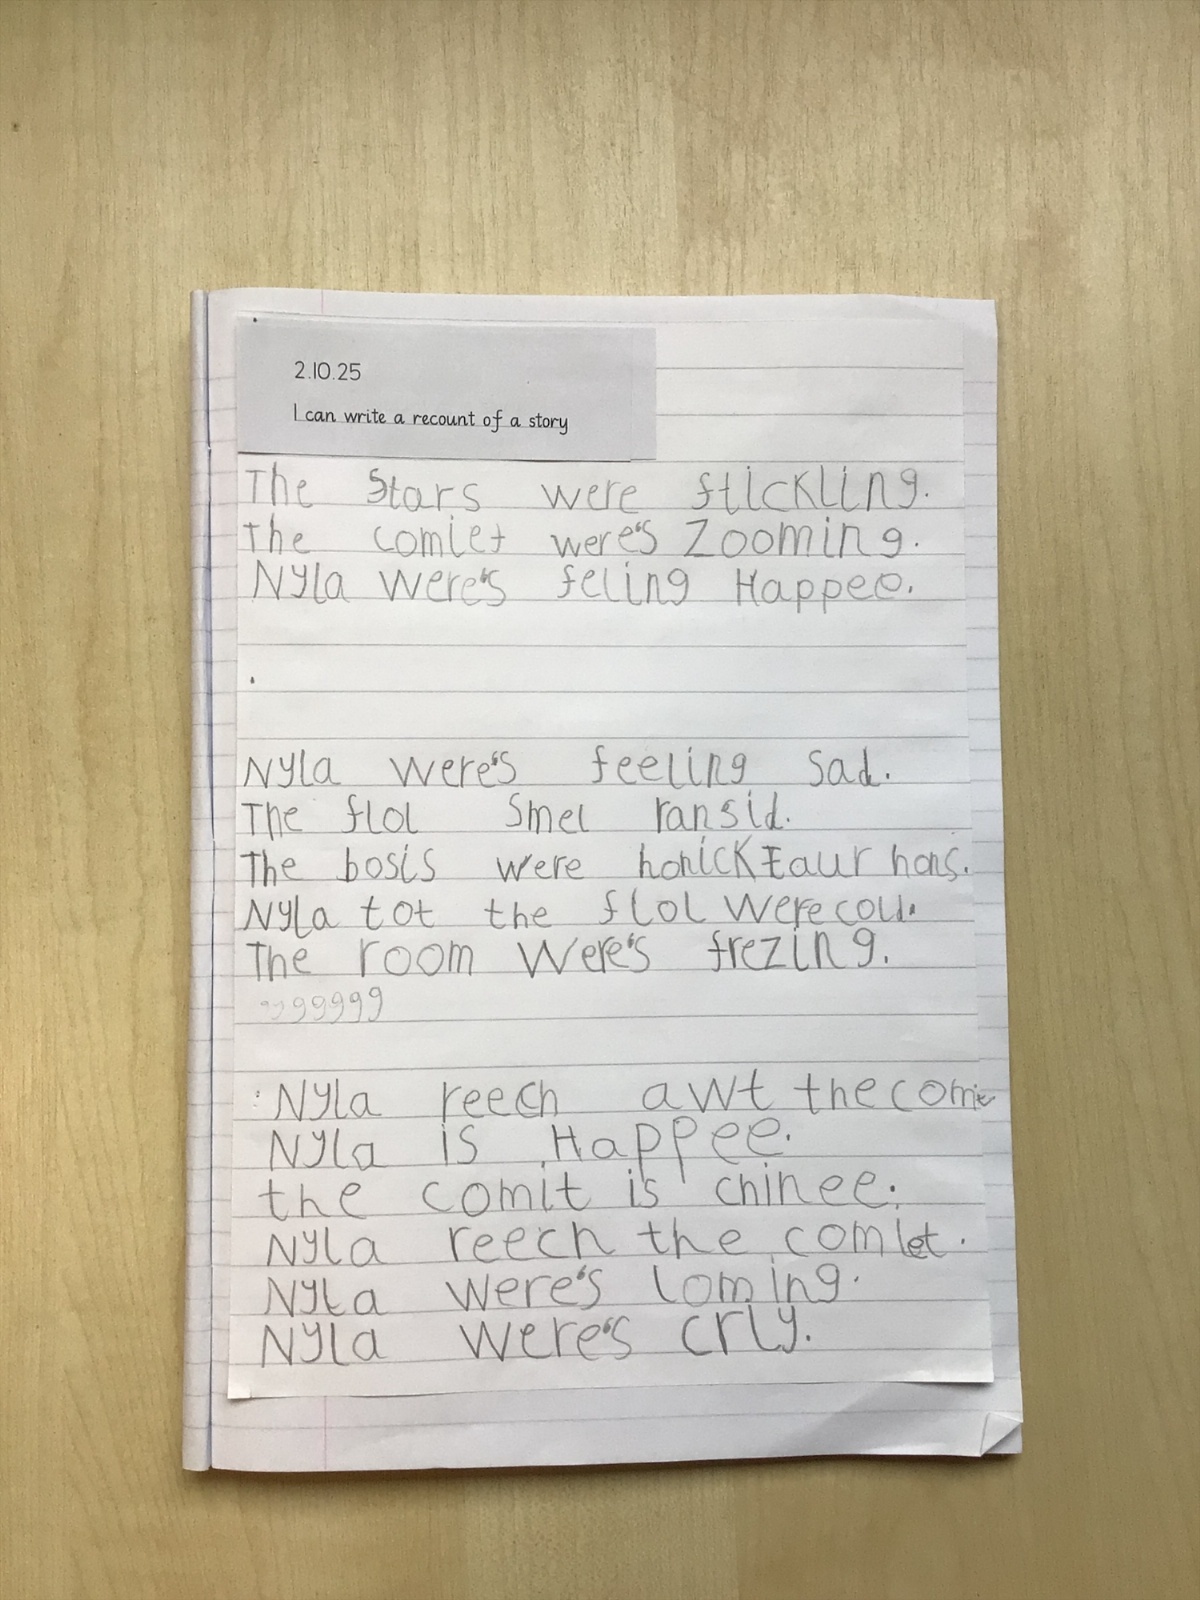 2.10.25
I can write a recount of a story
The Stars were stickling.
The comlet were's Zooming.
Nyla were's feling Happee.
Nyla were's feeling Sad.
The flol Smel ransid.
The bosis were honicktaur hons.
Nyla tot the flol were cold.
The room were's frezing.
999999
Nyla reech awt the come
Nyla is Happee.
the comit is chinee.
Nyla reech the comlet.
Nyla were's loming.
Nyla were's crly.